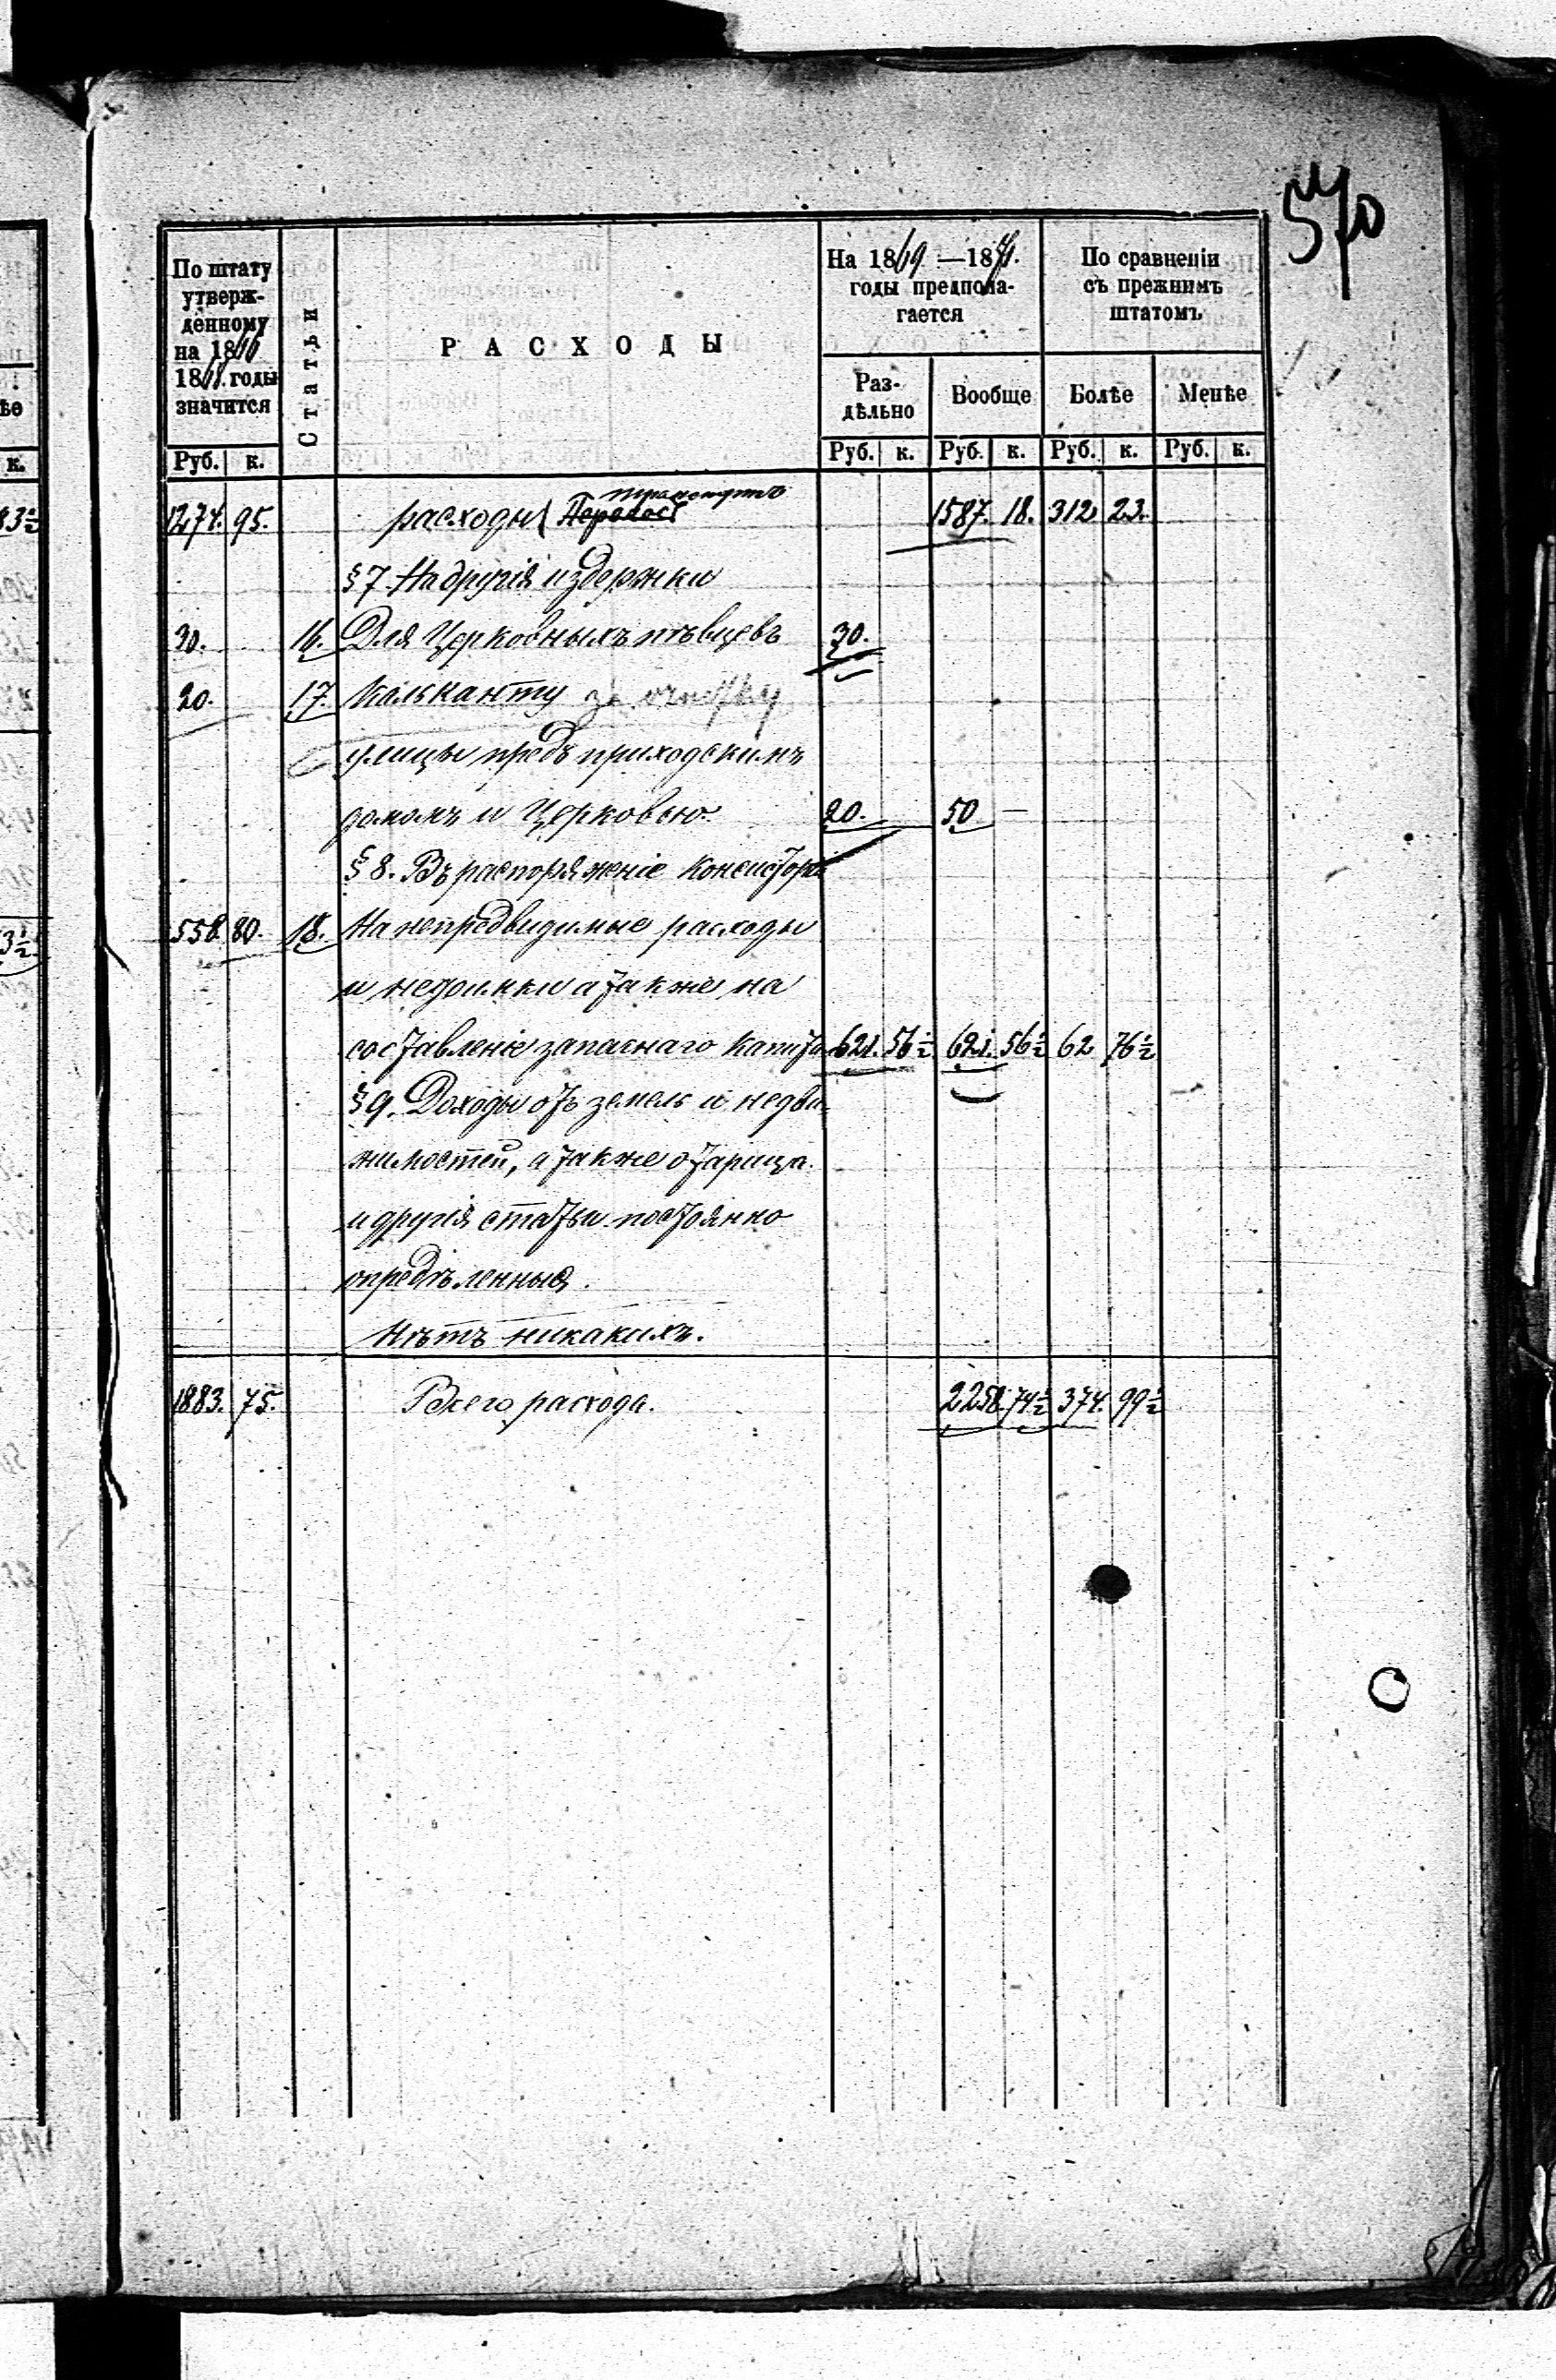 570
По штату утверж-
денному
на 1866
1868 годы
значится
Статьи
РАСХОДЫ
На 1869 — 1871.
годы предпола-
гается
По сравненіи
съ прежнимъ
штатомъ
Раз-
дѣльно
Вообще
Болѣе
Менѣе
Руб. к.
Руб. к. Руб. к. Руб. к. Руб. к.
1274. 95. расходы транспортъ 1587. 18. 312 23.
§ 7 На другія издержки
30. 16. Для Церковныхъ пѣвцевъ 30.
20. 17. Кальканту за очистку
улицы предъ приходскимъ
домомъ и Церковью. 20. 50 —
§ 8. Въ распоряженіе Консисторіи
558. 80. 18. На непредвидимые расходы
и недоимки а также на
составленіе запаснаго капита 621. 56½ 621. 56½ 62 76½
§ 9. Доходы отъ земель и недви-
жимостей, а также
и другія статьи постоянно
опредѣленныя.
Нѣтъ никакихъ.
1883. 75. Всего расхода. 2258. 74½ 374. 99½